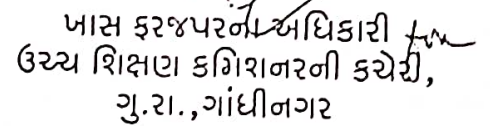 ખાસ ફરજપરના અધિકારી
ઉચ્ચ શિક્ષણ કમિશનરની કચેરી,
ગુ.રા.,ગાંધીનગર